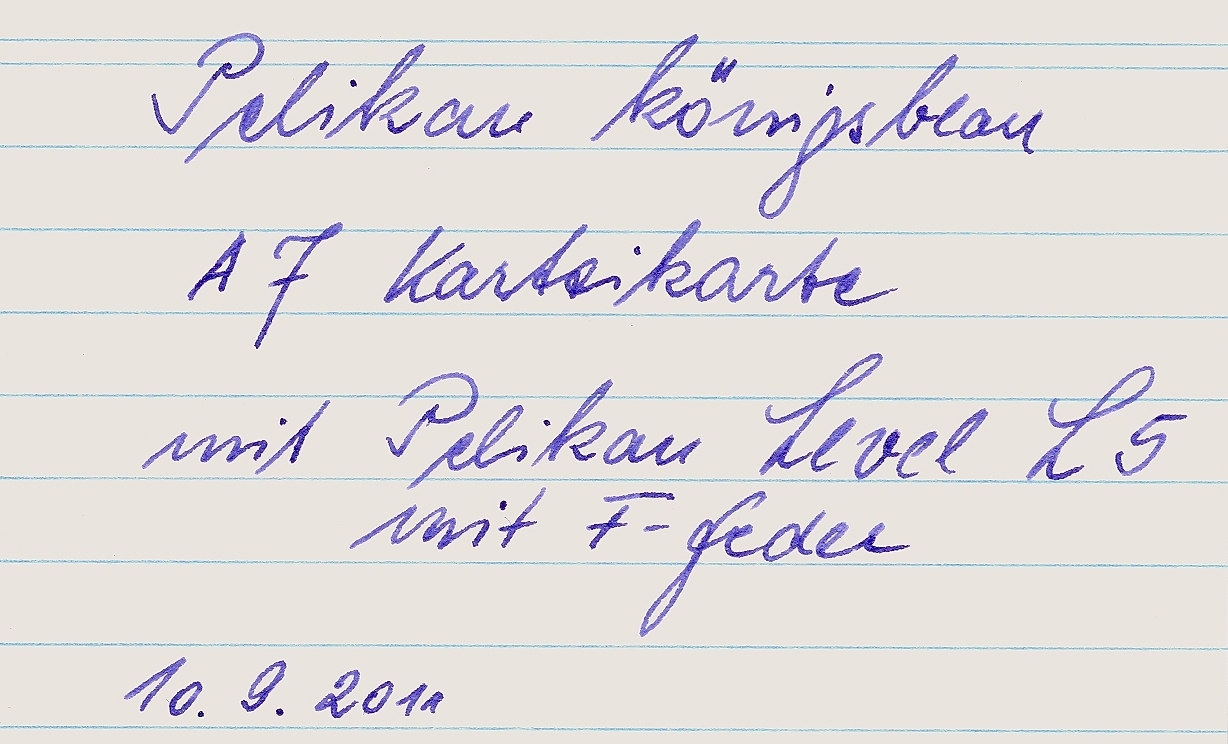 Pelikan königsblau
A7 Karteikarte
mit Pelikan Level L5
mit F-Feder
10. 9. 2011